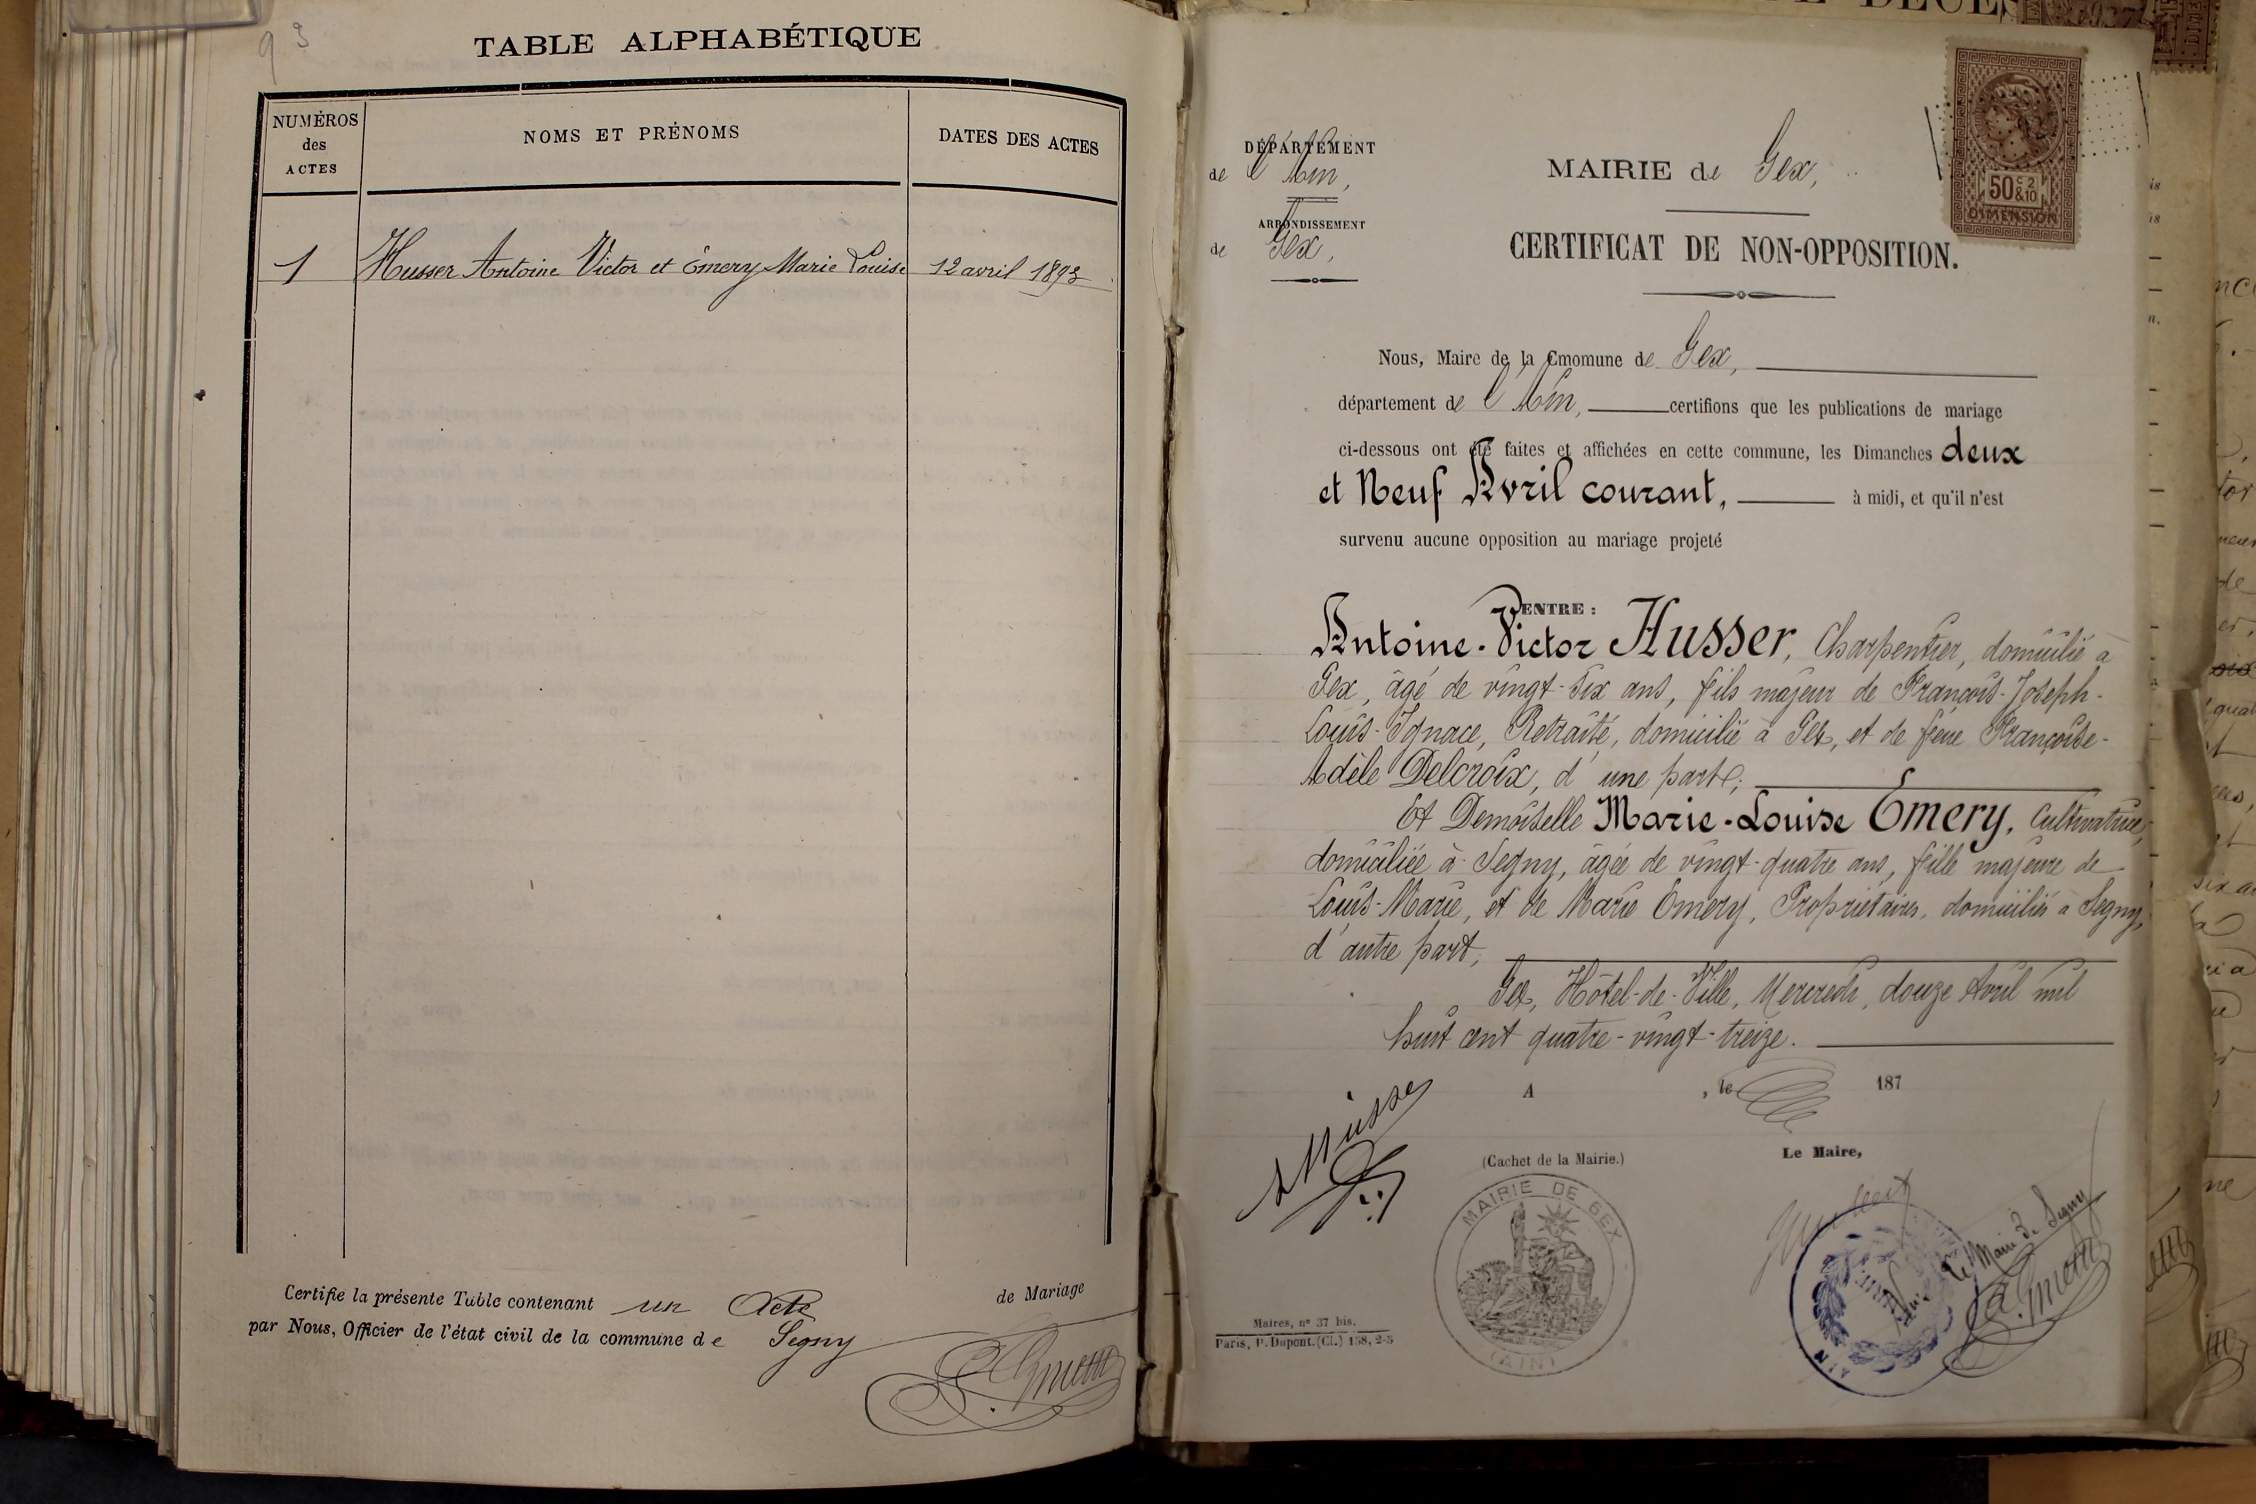 93
TABLE ALPHABÉTIQUE
NUMÉROS
des
ACTES
NOMS ET PRÉNOMS
DATES DES ACTES
1 Husser Antoine Victor et Emery Marie Louise 12 avril 1893
Certifie la présente Table contenant un Acte de Mariage
par Nous, Officier de l'état civil de la commune de Segny
DÉPARTEMENT
de l'Ain,
ARRONDISSEMENT
de Gex,
MAIRIE de Gex,
50 c 2 &10
DIMENSION
CERTIFICAT DE NON-OPPOSITION.
Nous, Maire de la Cmomune de Gex,
département de l'Ain, certifions que les publications de mariage
ci-dessous ont été faites et affichées en cette commune, les Dimanches deux
et Neuf Avril courant, à midi, et qu'il n'est
survenu aucune opposition au mariage projeté
ENTRE :
Antoine-Victor Husser, Charpentier, domicilié à
Gex, âgé de vingt-six ans, fils majeur de François-Joseph-
Louis-Ignace, Retraité, domicilié à Gex, et de feue Françoise-
Adèle Delcroix, d'une part;
Et Demoiselle Marie-Louise Emery, Cultivatrice,
domiciliée à Segny, âgée de vingt-quatre ans, fille majeure de
Louis-Marie, et de Marie Emery, Propriétaires, domiciliés à Segny,
d'autre part,
Gex, Hôtel-de-Ville, Mercredi, douze Avril mil
huit cent quatre-vingt-treize.
A , le 187
(Cachet de la Mairie.)
Le Maire,
MAIRIE DE GEX
(AIN)
Le Maire de Segny
AIN
Maires, nº 37 bis.
Paris, P. Dupont. (Cl.) 158, 2-5